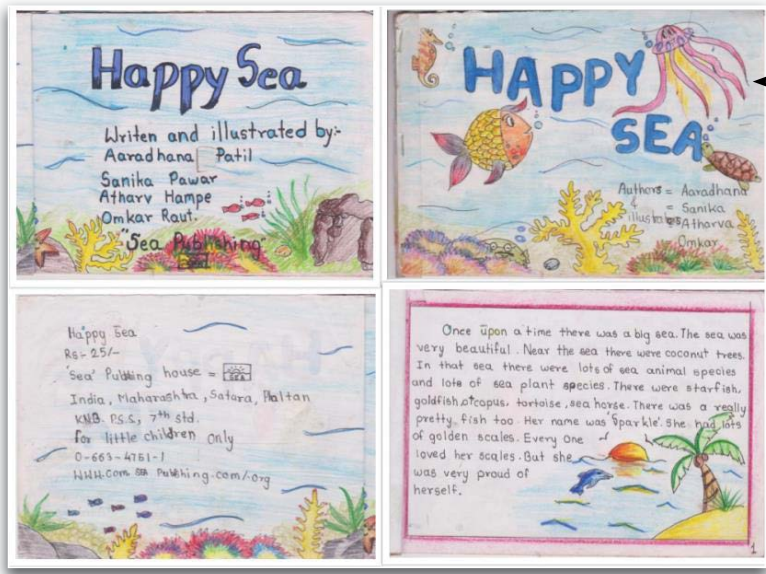 Happy Sea
Writen and illustrated by:-
Aaradhana Patil
Sanika Pawar
Atharv Hampe
Omkar Raut.
"Sea Publishing"
HAPPY
SEA
Authors = Aaradhana
& = Sanika
= Atharva
Omkar
Happy Sea
Rs:- 25/-
'Sea' house =
SEA
India, Maharashtra, Satara, Phaltan
P.S.S, 7th std.
For little children only
0-663-4761-1
Once upon a time there was a big sea. The sea was
very beautiful. Near the sea there were coconut trees.
In that sea there were lots of sea animal species
and lots of sea plant species. There were starfish,
goldfish, otcopus, tortoise, sea horse. There was a really
pretty fish too. Her name was 'Sparkle'. She had lots
of golden scales. Every one
loved her scales. But she
was very proud of
herself.
1